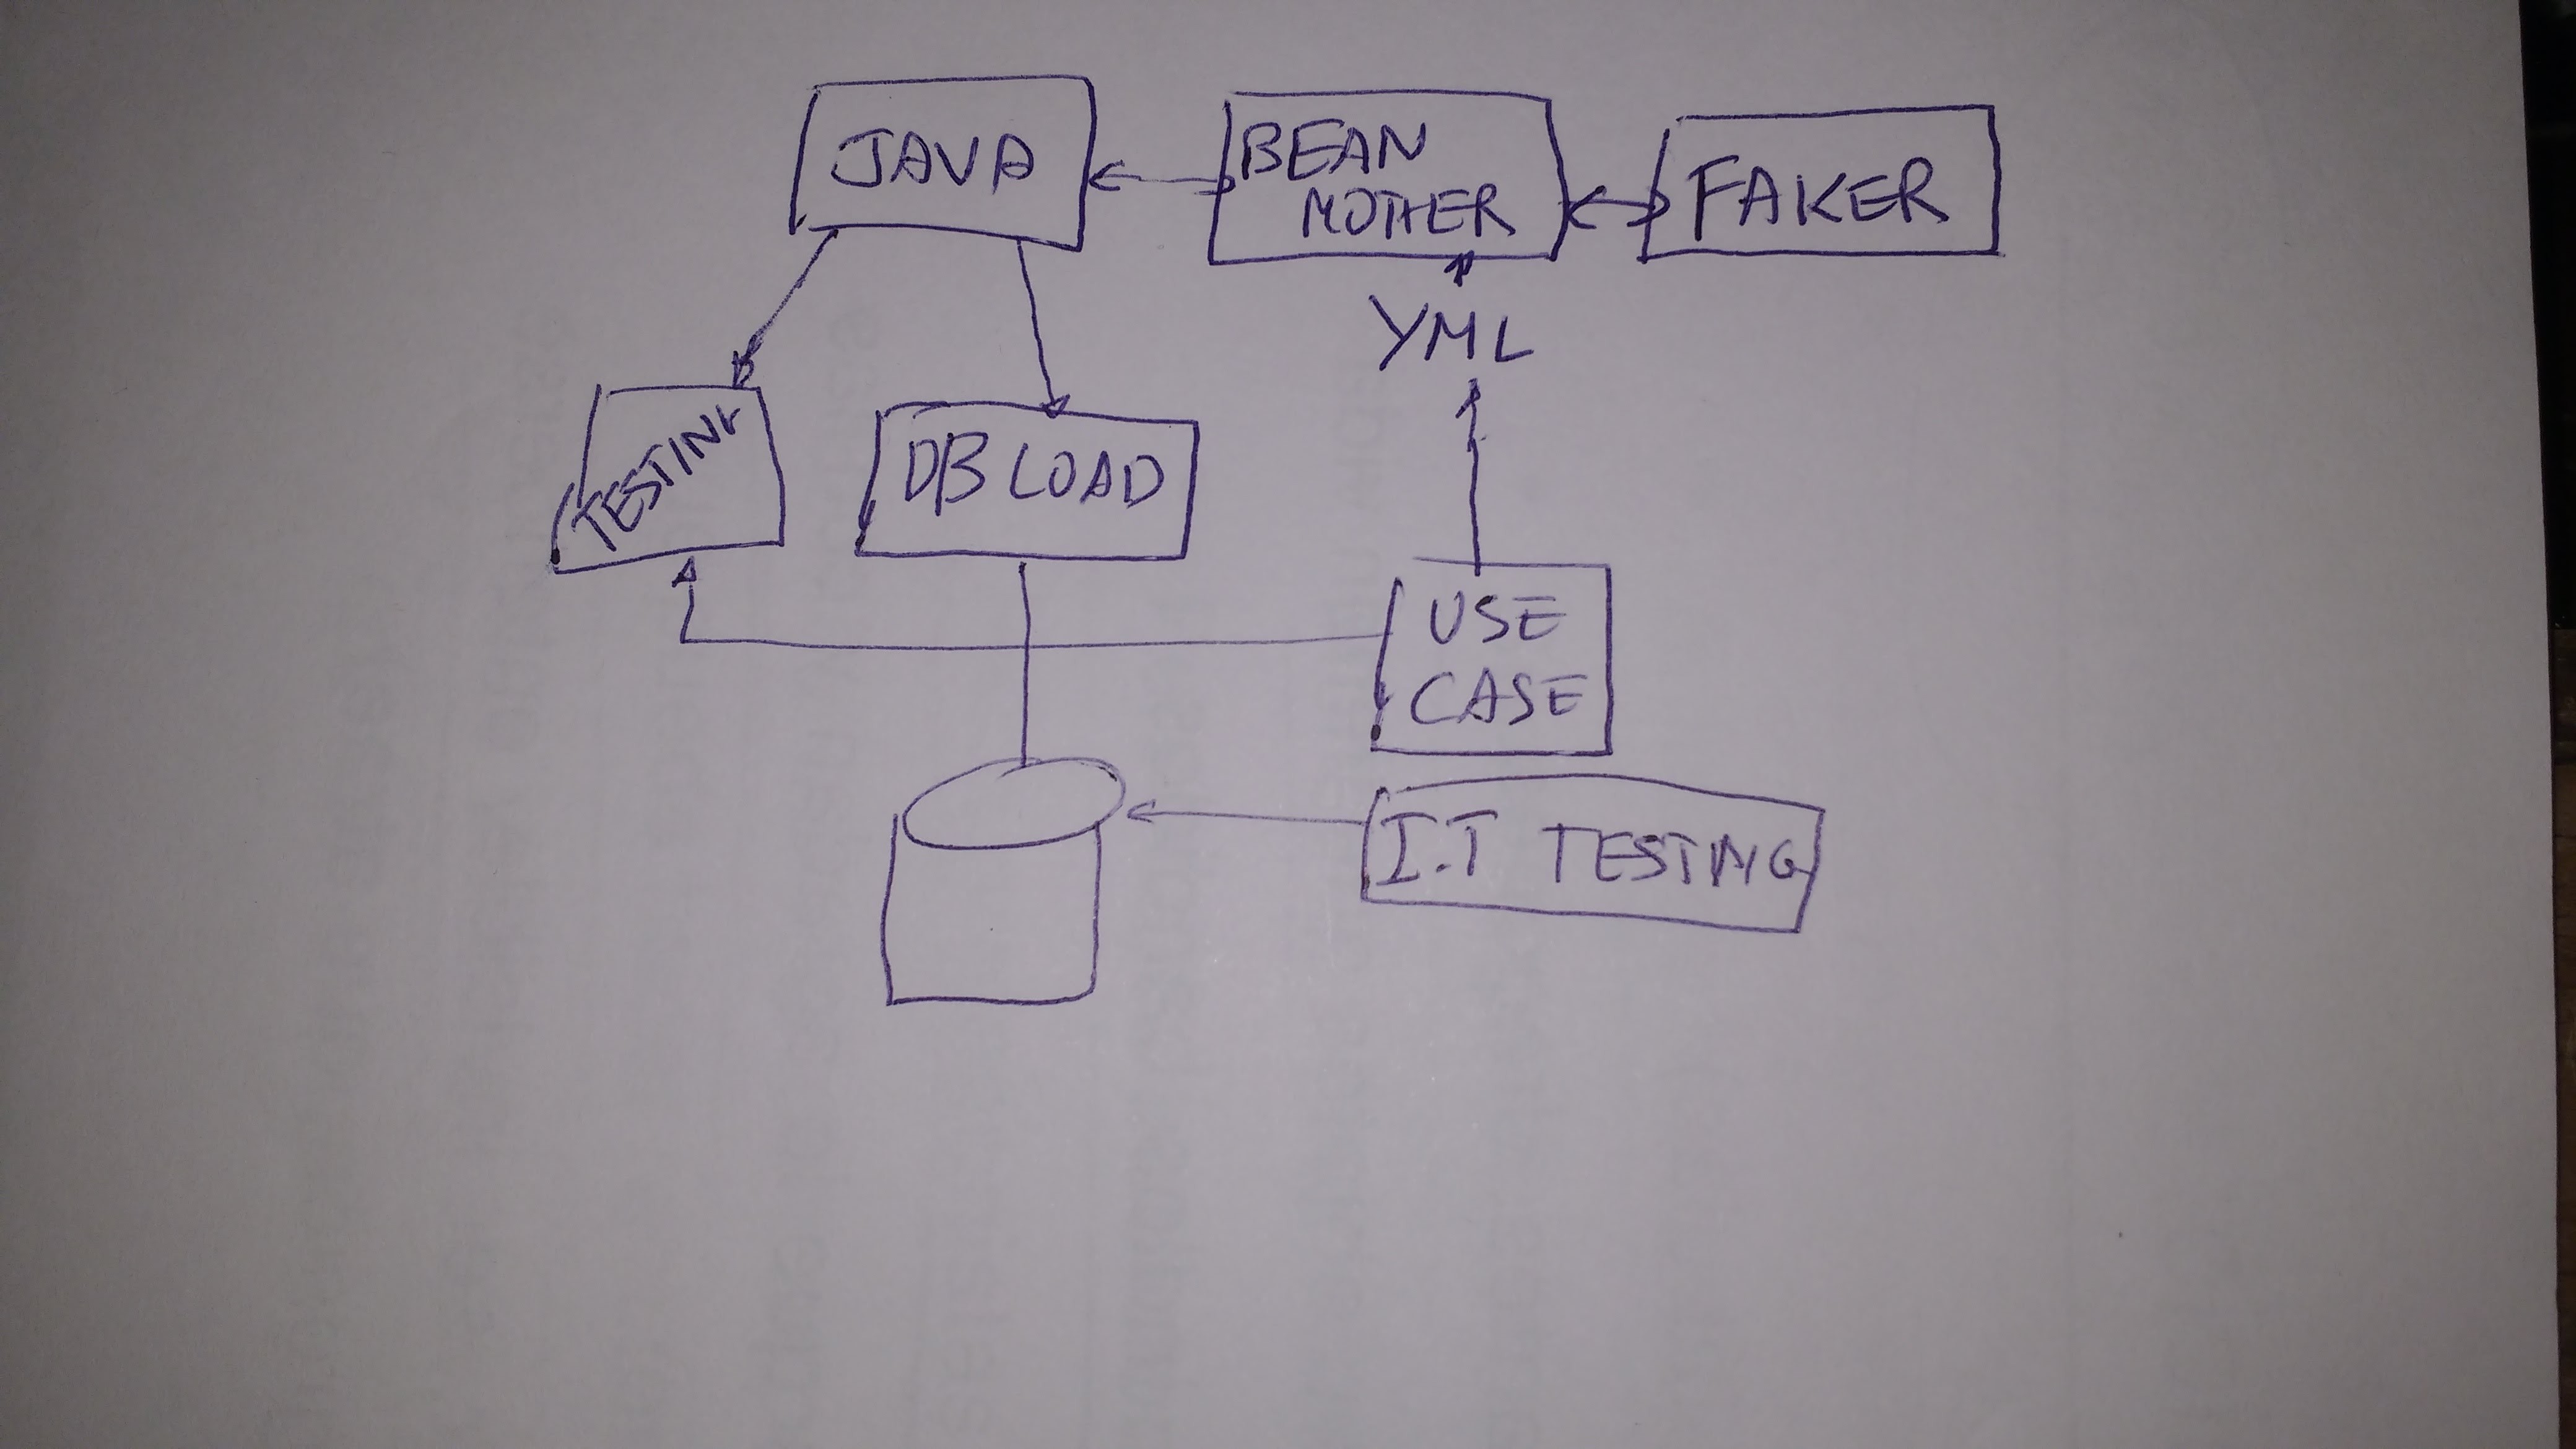 JAVA
BEAN
MOTHER
FAKER
YML
TESTING
DB LOAD
USE
CASE
I.T TESTING